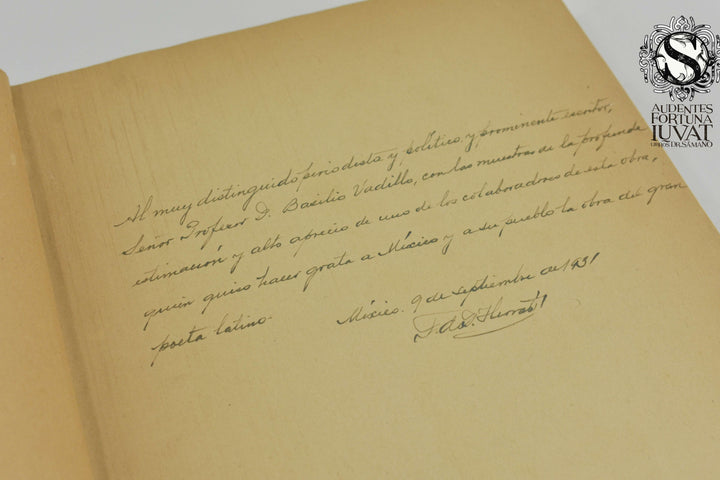 Al muy distinguido periodista y, político y prominente escritor,
Señor Profesor D. Basilio Vadillo, con las muestras de la profunda
estimación y alto aprecio de uno de los colaboradores de esta obra,
quien quiso hacer grata a México y a su pueblo la obra del gran
poeta latino.
México. 9 de septiembre de 1931
S
AUDENTES
FORTUNA
IUVAT
LIBROS DR. SÁMANO